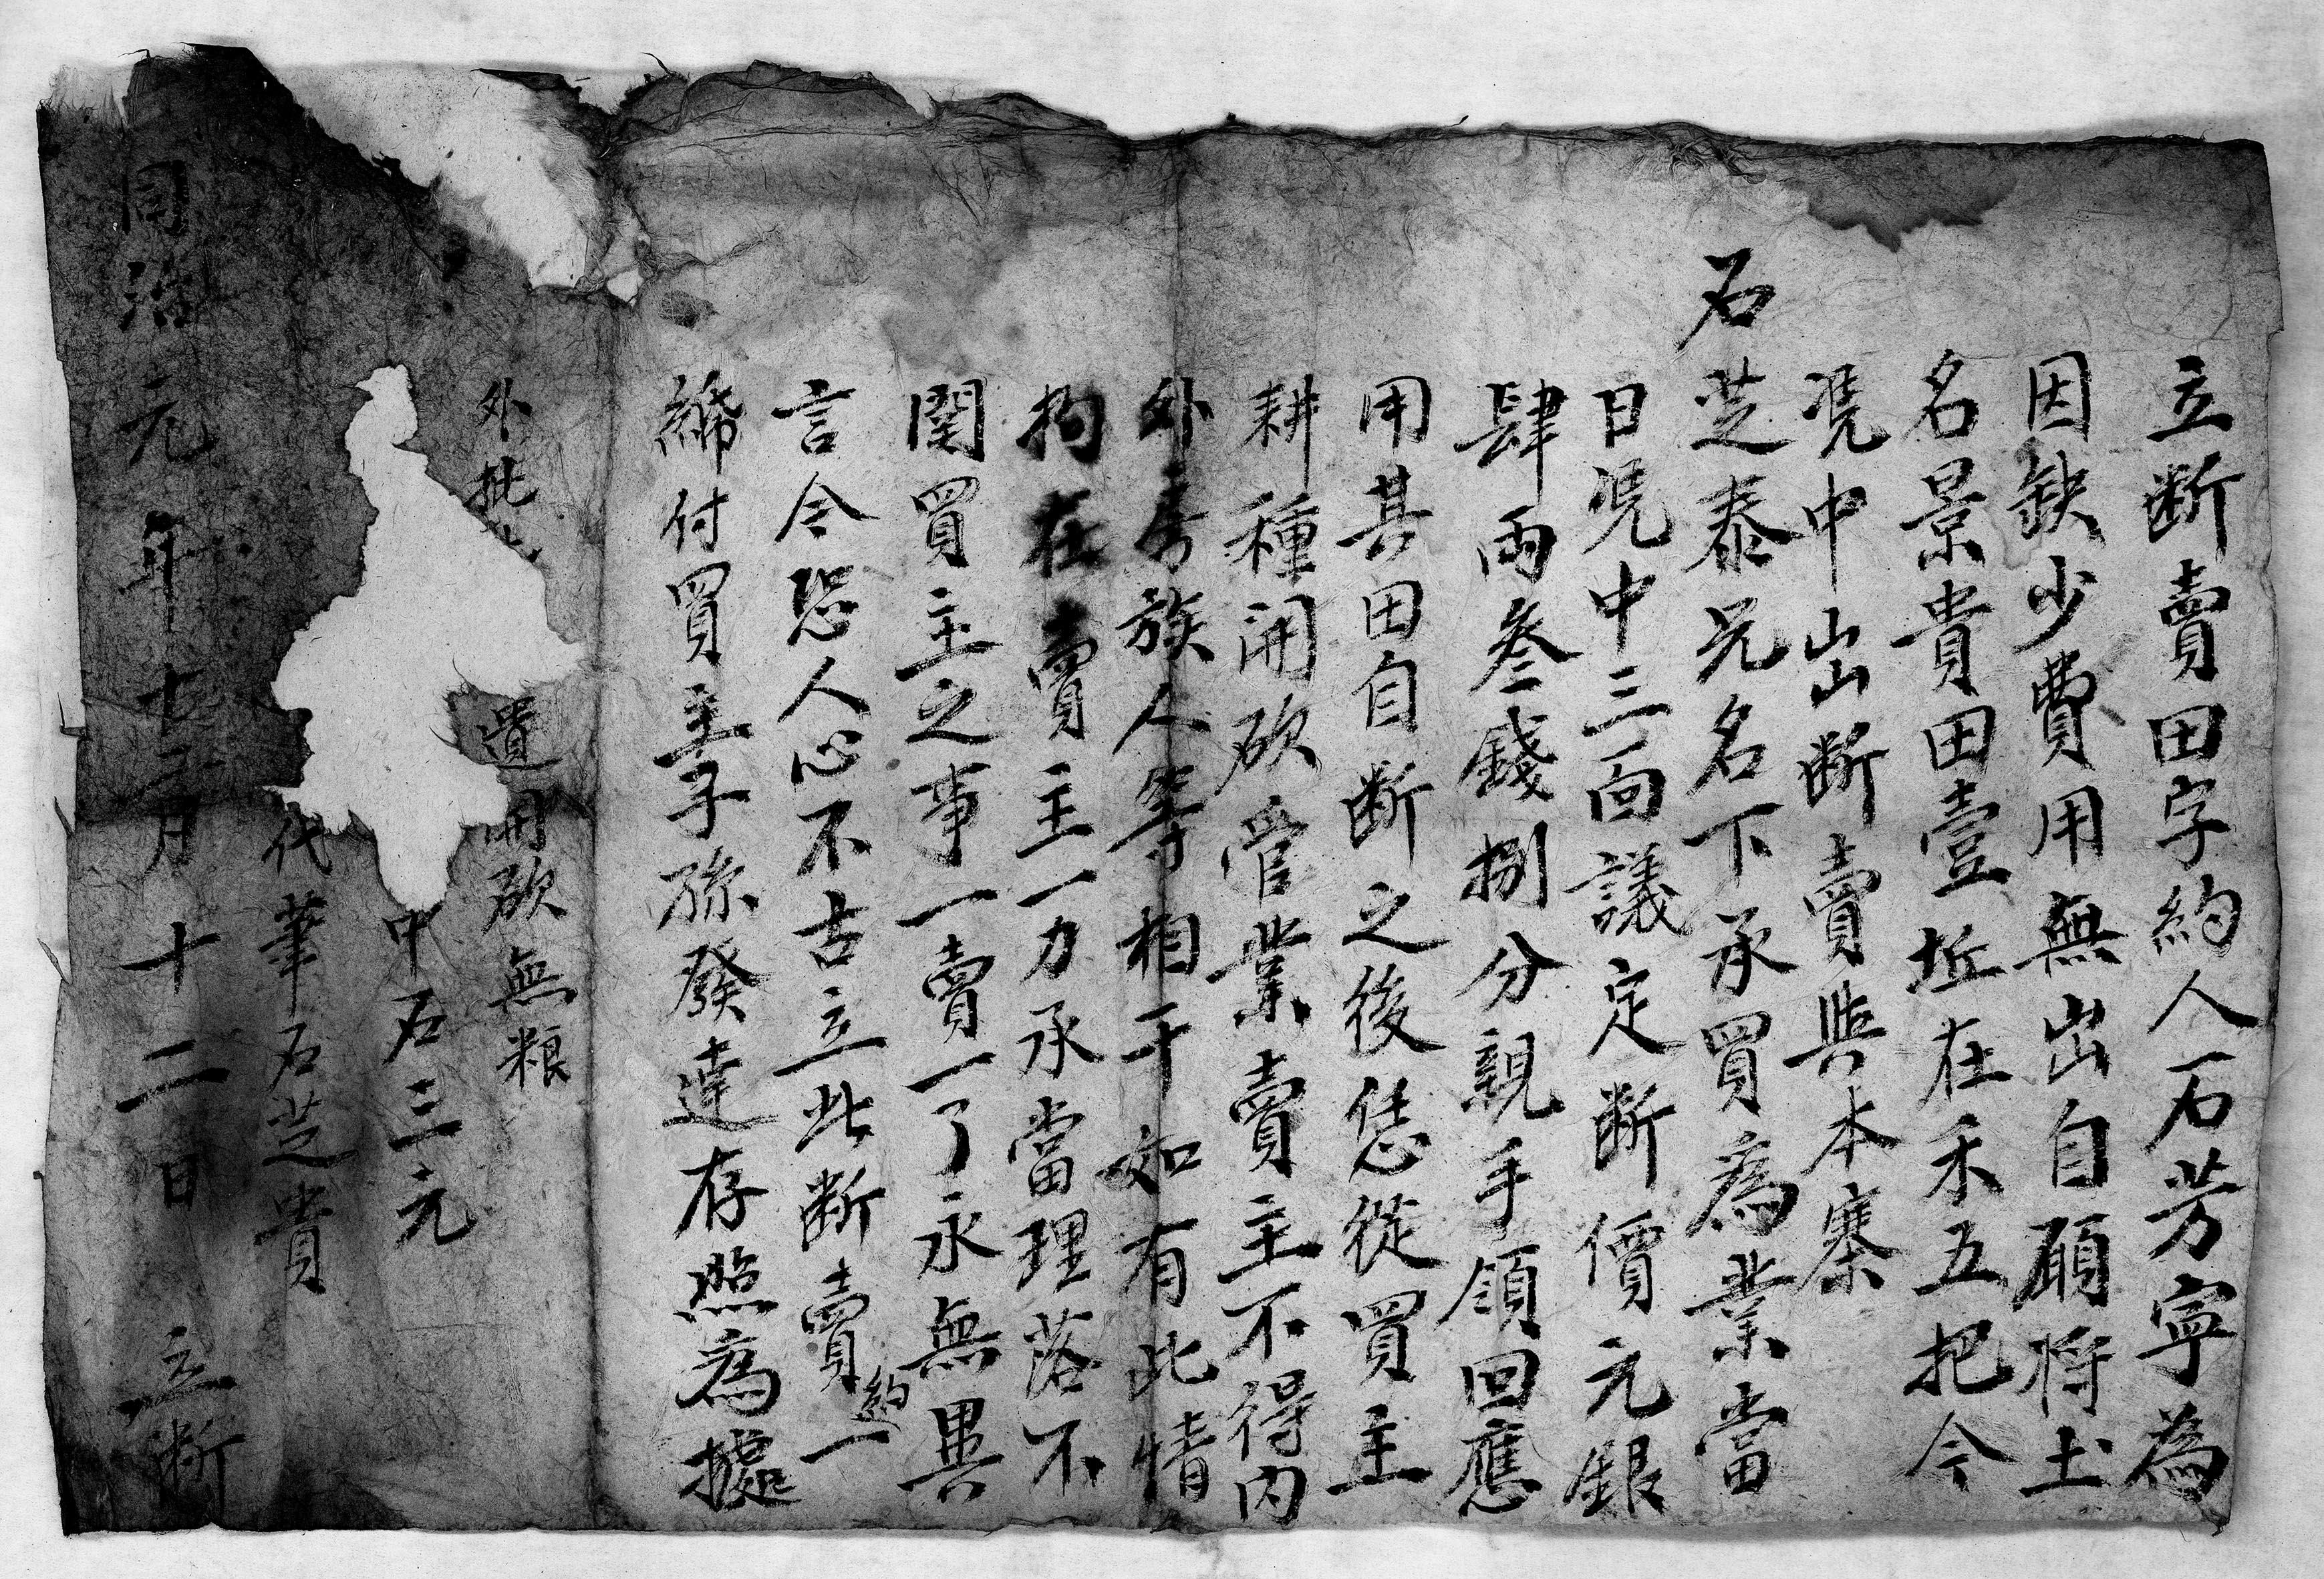 立断賣田字約人石芳寧為
因缺少費用無出自願將土
名景貴田壹坵在禾五把今
凴中出断賣與本寨
石芝泰兄名下承買為業當
日凴中三面議定断價元銀
肆兩叁錢捌分親手領回應
用其田自断之後恁從買主
耕種開砍管業賣主不得内
外房族人等相干如有此情
拘在賣主一力承當理落不
関買主之事一賣一了永無異
言今恐人心不古立此断賣約一
紙付買主子孫發達存照為據
外批 遺開砍無粮
中石三元
代筆石芝貴
同治元年十二月十二日 立断